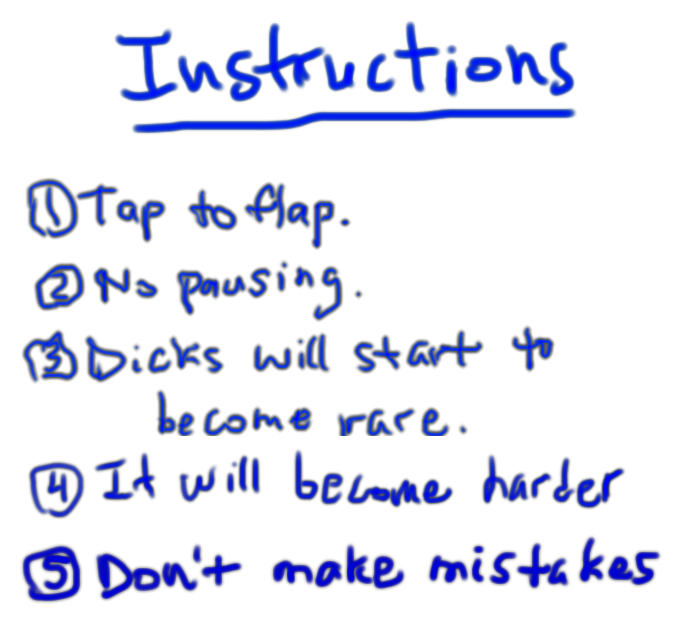 Instructions
① Tap to flap.
② No pausing.
③ Dicks will start to
become rare.
④ It will become harder
⑤ Don't make mistakes